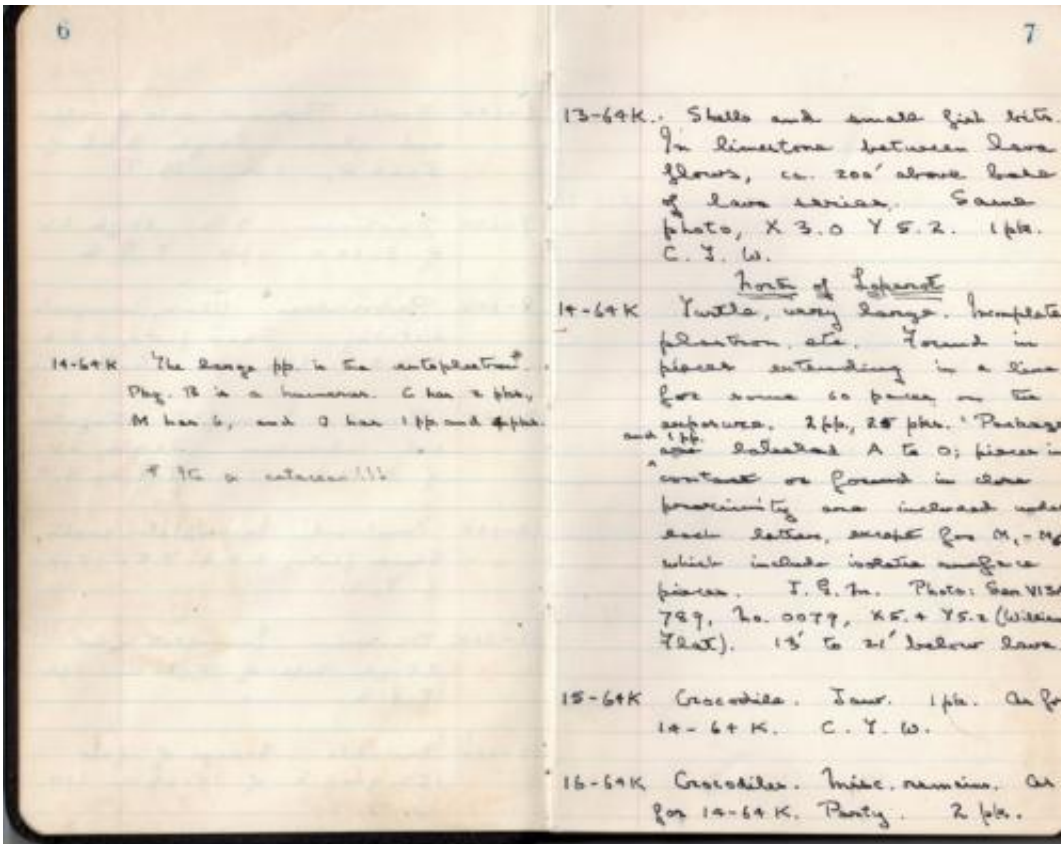 6
14-64K The large pp. is the entoplastron*.
Pkg. B is a humerus. C has 2 pks,
M has 6, and O has 1 pp and 4 pks.
* It's a cetacean!!!
7
13-64K. Shells and small fish bits.
In limestone between lava
flows, ca. 200' above base
of lava series. Same
photo, X 3.0 Y 5.2. 1 pk.
C. T. W.
North of Loperot
14-64K Turtle, very large. Incomplete
plastron, etc. Found in
pieces extending in a line
for some 60 paces on the
exposure. 2 pp, 25 pks. Package
and 1 pp.
are labeled A to O; pieces in
contact or found in close
proximity are included under
each letter, except for M₁-M6
which include isolated surface
pieces. J. G. M. Photo:
789, No. 0079, X5.4 Y5.2 (William
Flat). 13' to 21' below lava
15-64K Crocodile. Jaw. 1 pk. As for
14-64K. C. T. W.
16-64K Crocodiles. Misc. remains. As
for 14-64K. Party. 2 pks.